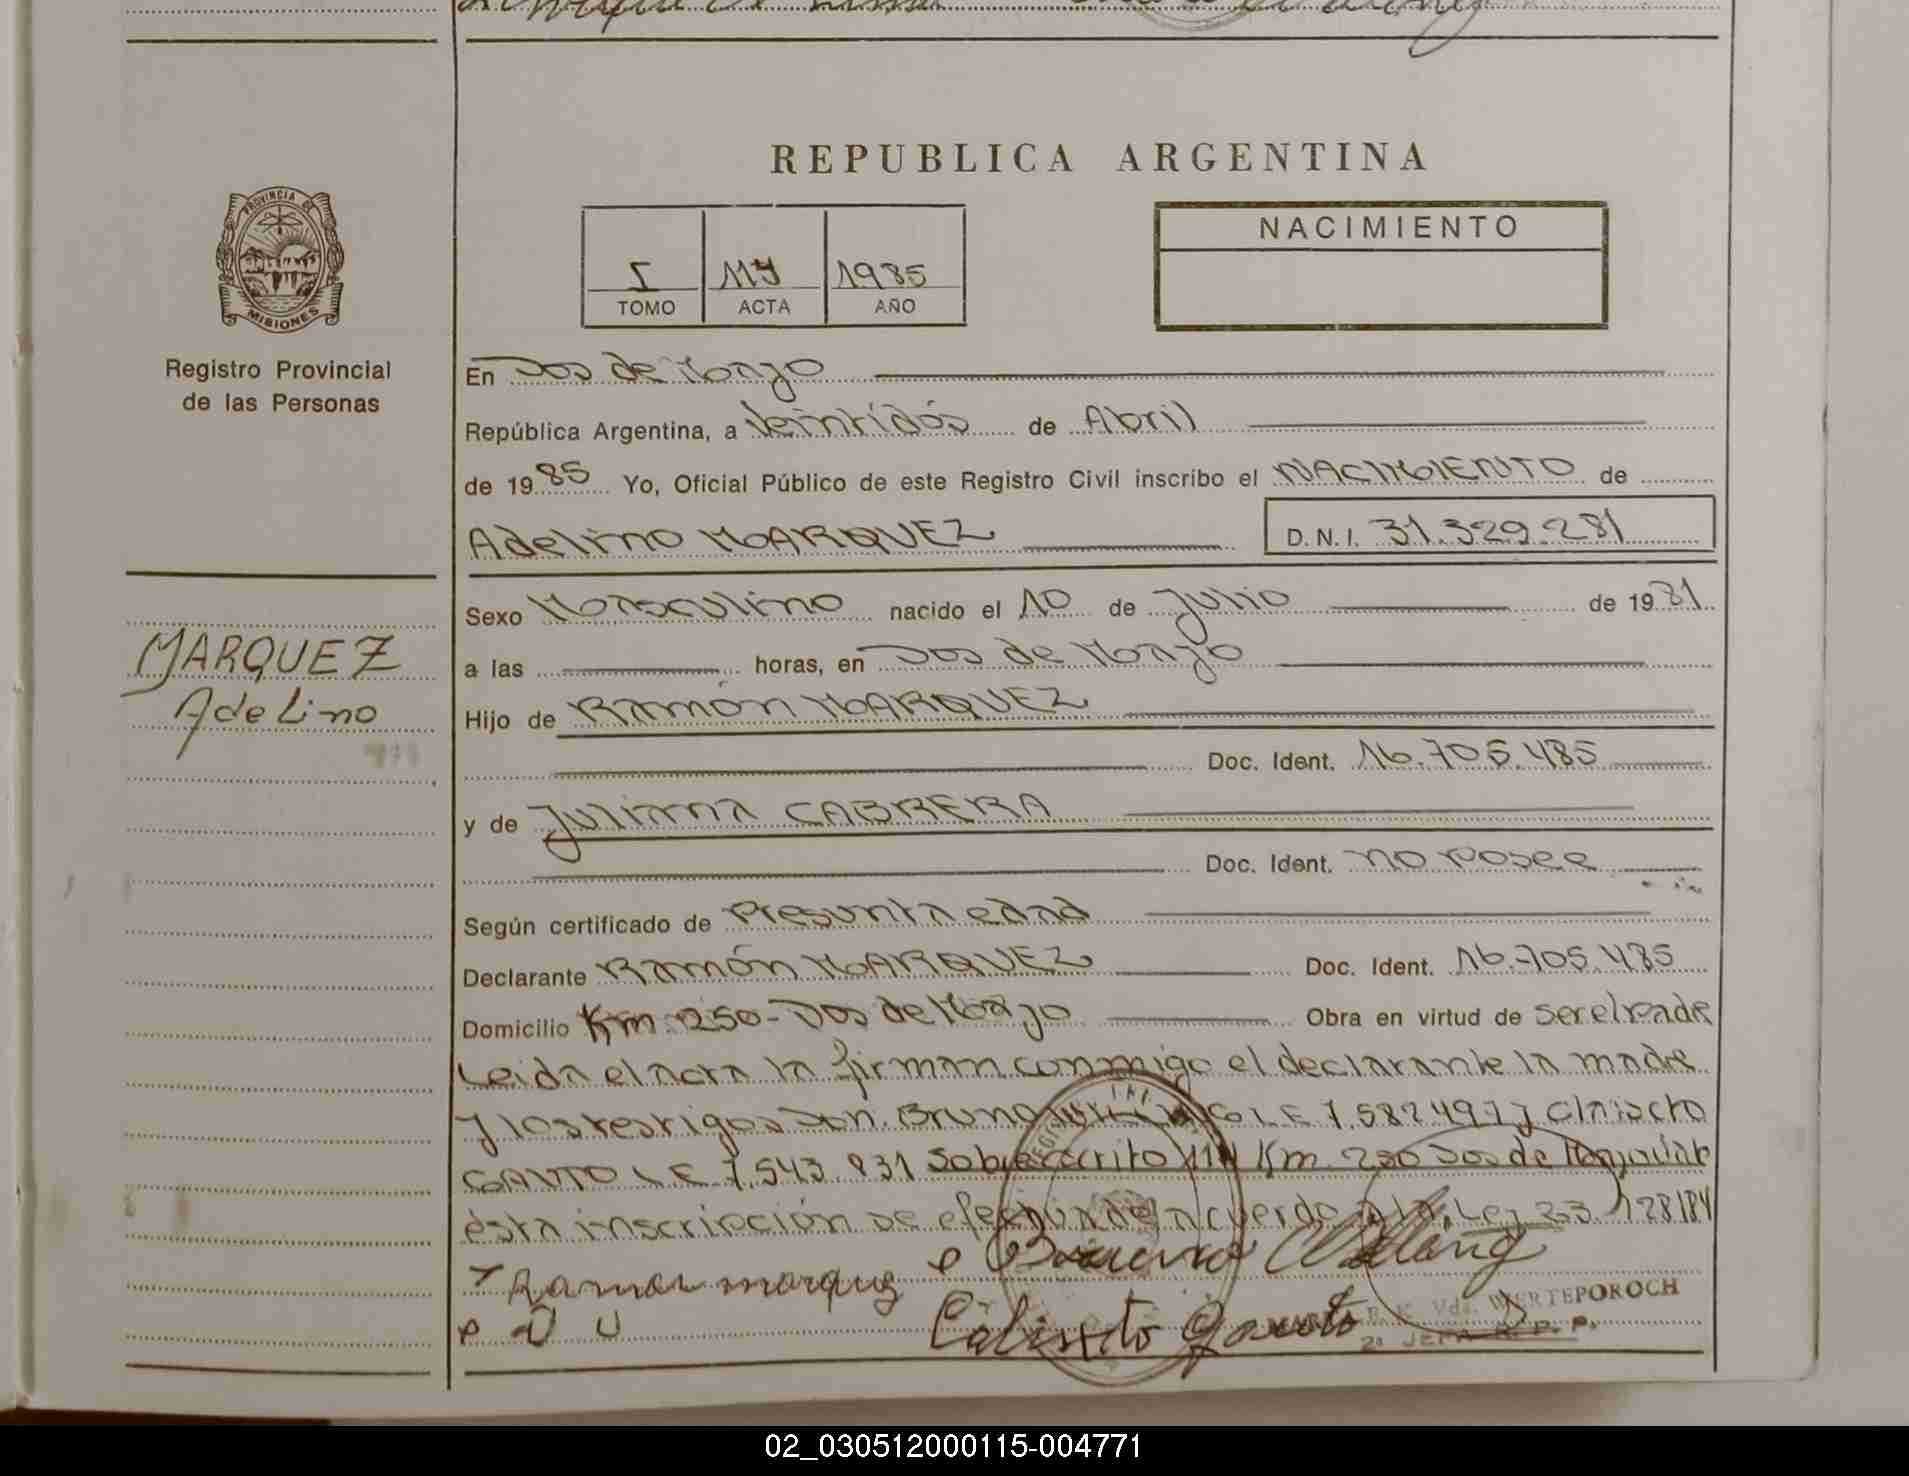 REPUBLICA ARGENTINA
PROVINCIA DE
MISIONES
Registro Provincial
de las Personas
I
1985
TOMO
ACTA
AÑO
NACIMIENTO
En Dos de Mayo
República Argentina, a Veintidós de Abril
de 1985 Yo, Oficial Público de este Registro Civil inscribo el NACIMIENTO de
Adelino MARQUEZ
D.N.I. 31.329.281
MARQUEZ
Adelino
Sexo Masculino nacido el 10 de Julio de 1981
a las horas, en Dos de Mayo
Hijo de Ramón MARQUEZ
Doc. Ident. 16.705.485
y de Juliana CABRERA
Doc. Ident. no posee
Según certificado de Presunta edad
Declarante Ramón MARQUEZ Doc. Ident. 16.705.485
Domicilio Km. 250-Dos de Mayo Obra en virtud de ser el padre
Leida el acta la firman conmigo el declarante la madre
y los testigos Don. Bruno L E 7.582497 y Calixcto
GAUTO L E 7.543.831 Sobrescrito Km. 250 Dos de Mayo
ésta inscripción se efectúa de acuerdo a la Ley 23.128/84
Ramon marquez
Calixcto Gauto
Vda. WERTEPOROCH
2a JEFA R. P. P.
02_030512000115-004771